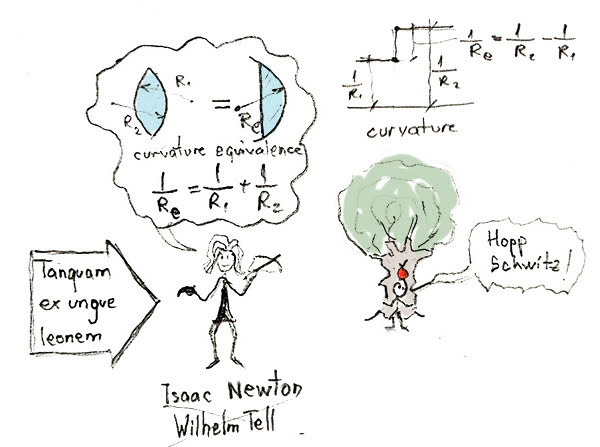 R₁
R₂
=
Re
curvature equivalence
1/Re = 1/R₁ + 1/R₂
1/Re = 1/R₂ - 1/R₁
1/R₁
1/R₂
curvature
Tanquam
ex ungve
leonem
Hopp
Schwitz!
Isaac Newton
Wilhelm Tell